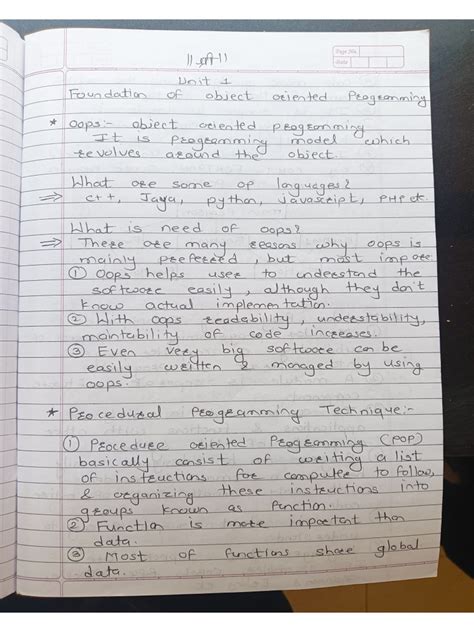 || श्री ||
Page No.
Date
Unit 1
Foundation of object oriented Programming
* Oops:- object oriented programming
It is programming model which
revolves around the object.
What are some op languages?
⇒ C++, Java, python, Javascript, PHP etc.
What is need of oops?
⇒ There are many reasons why oops is
mainly preferred, but most impore:
① Oops helps user to understand the
software easily, although they don't
know actual implementation.
② With oops readability, understability,
maintability of code increases.
③ Even very big software can be
easily written & managed by using
oops.
* Procedural Programming Technique:-
① Procedure oriented Programming (POP)
basically consist of writing a list
of instructions for computer to follow,
& organizing these instructions into
groups known as function.
② Function is more important than
data.
③ Most of functions share global
data.